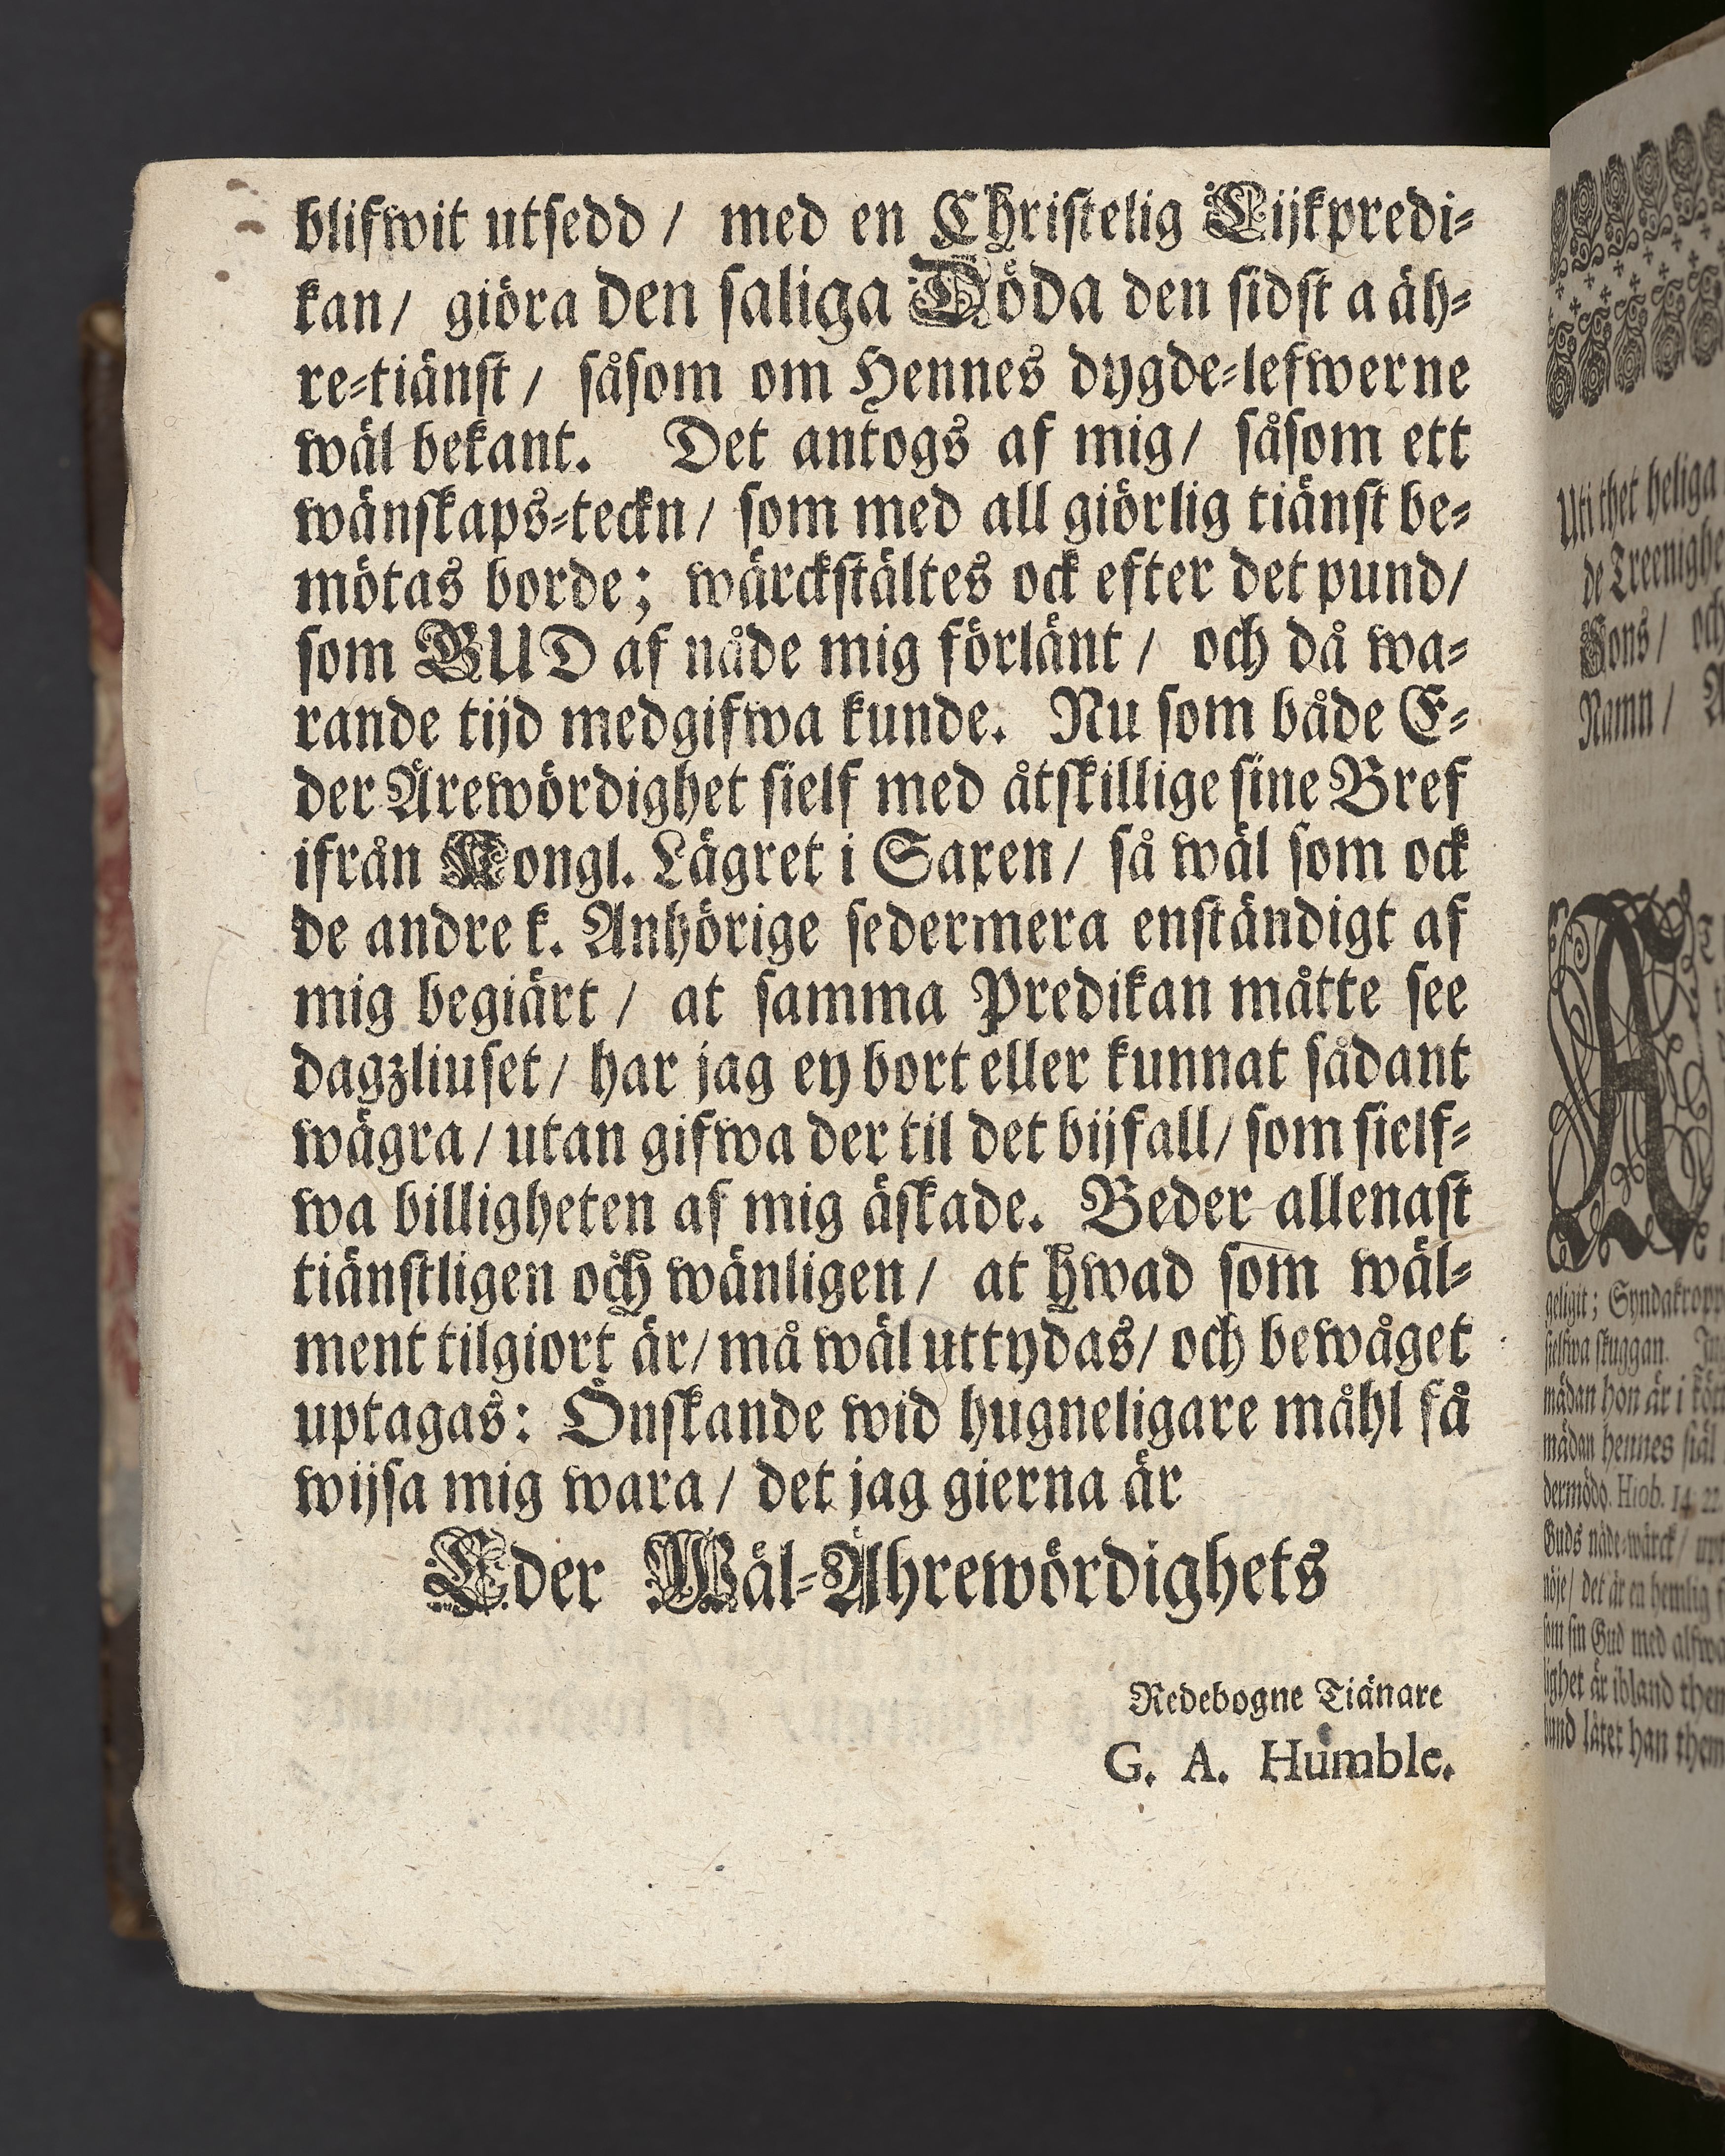 blifwit utsedd / med en Christelig Lijkpredi-
kan / giöra den saliga Döda den sidst a äh-
re-tiänst / såsom om Hennes dygde-lefwerne
wäl bekant. Det antogs af mig / såsom ett
wänskaps-teckn / som med all giörlig tiänst be-
mötas borde; wärckstältes ock efter det pund /
som GUD af nåde mig förlänt / och då wa-
rande tijd medgifwa kunde. Nu som både E-
der Ärewördighet sielf med åtskillige sine Bref
ifrån Kongl. Lägret i Saxen / så wäl som ock
de andre k. Anhörige sedermera enständigt af
mig begiärt / at samma Predikan måtte see
dagzliuset / har jag ey bort eller kunnat sådant
wägra / utan gifwa der til det bijfall / som sielf-
wa billigheten af mig äskade. Beder allenast
tiänstligen och wänligen / at hwad som wäl-
ment tilgiort är / må wäl uttydas / och bewåget
uptagas: Önskande wid hugneligare måhl få
wijsa mig wara / det jag gierna är
Eder Wäl-Ährewördighets
Redebogne Tiänare
G. A. Humble.
Uti thet heliga
de Treenighe
Sons / och
Namn / A
A
geligit; Syndakropp
sielfwa skuggan.
mädan hon är i kött
mädan hennes siäl
dermödo. Hiob. 14: 22
Guds näde-wärck / upt
nöje / det är en hemlig
som sin Gud med alfwa
lighet är ibland them
bund låtet han them